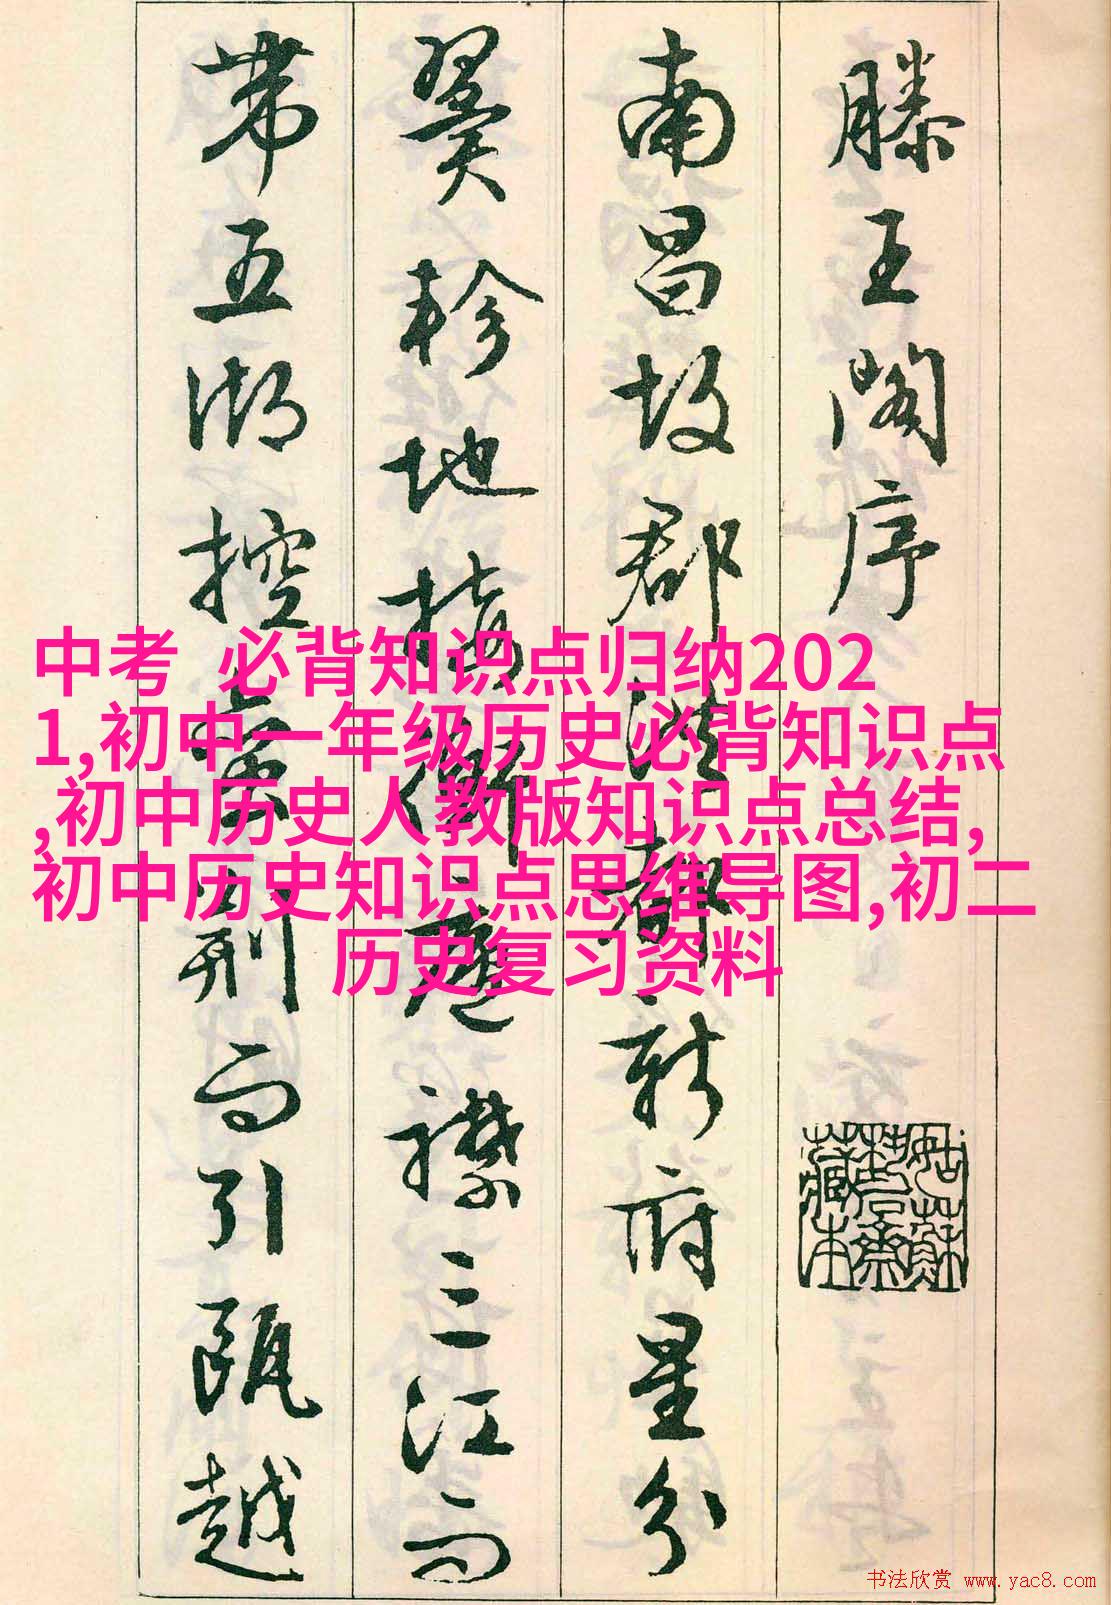 滕王閣序
南昌故郡洪都新府星分
翼軫地接衡廬襟三江而
帶五湖控蛮荆而引甌越
中考  必背知识点归纳202
1,初中一年级历史必背知识点
,初中历史人教版知识点总结,
初中历史知识点思维导图,初二
历史复习资料
书法欣赏 www.yac8.com